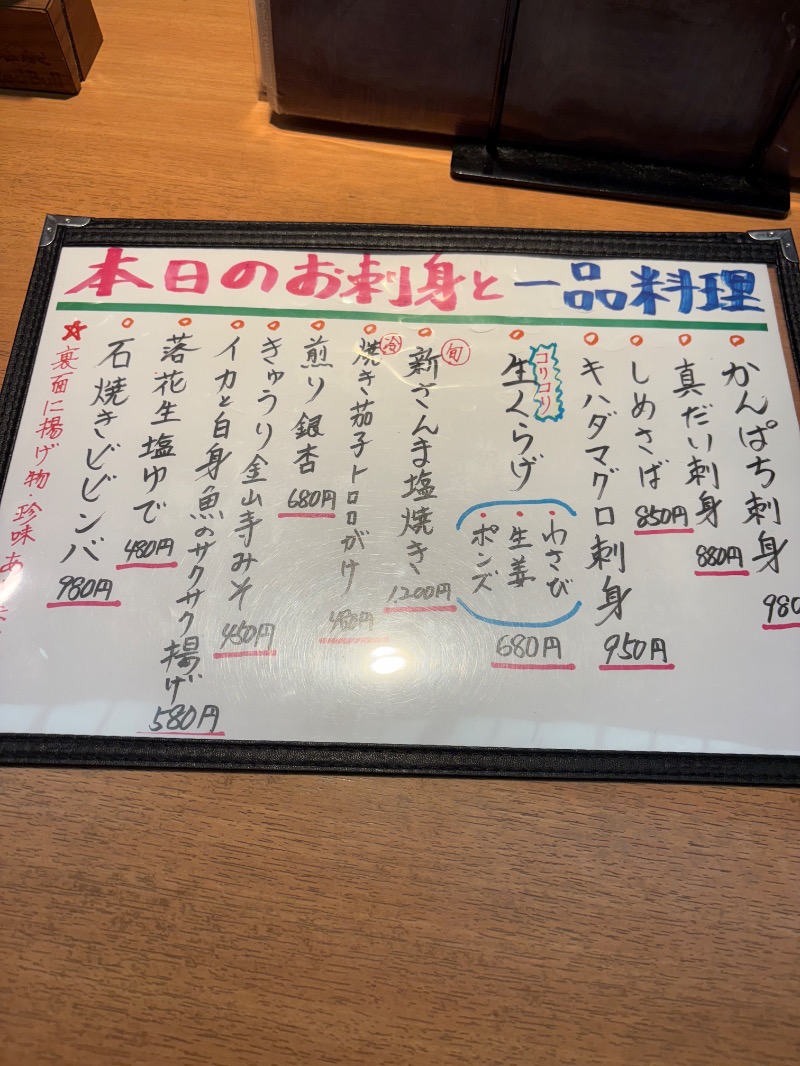 本日のお刺身と一品料理
かんぱち刺身
980
真だい刺身
880円
しめさば
850円
キハダマグロ刺身
950円
コリコリ
生くらげ
・わさび
・生姜
・ポンズ
680円
旬
新さんま塩焼き
1,200円
冷
焼き茄子トロロがけ
480円
煎り銀杏
680円
きゅうり金山寺みそ
450円
イカと白身魚のサクサク揚げ
580円
落花生塩ゆで
480円
石焼きビビンバ
980円
☆裏面に揚げ物・珍味あ